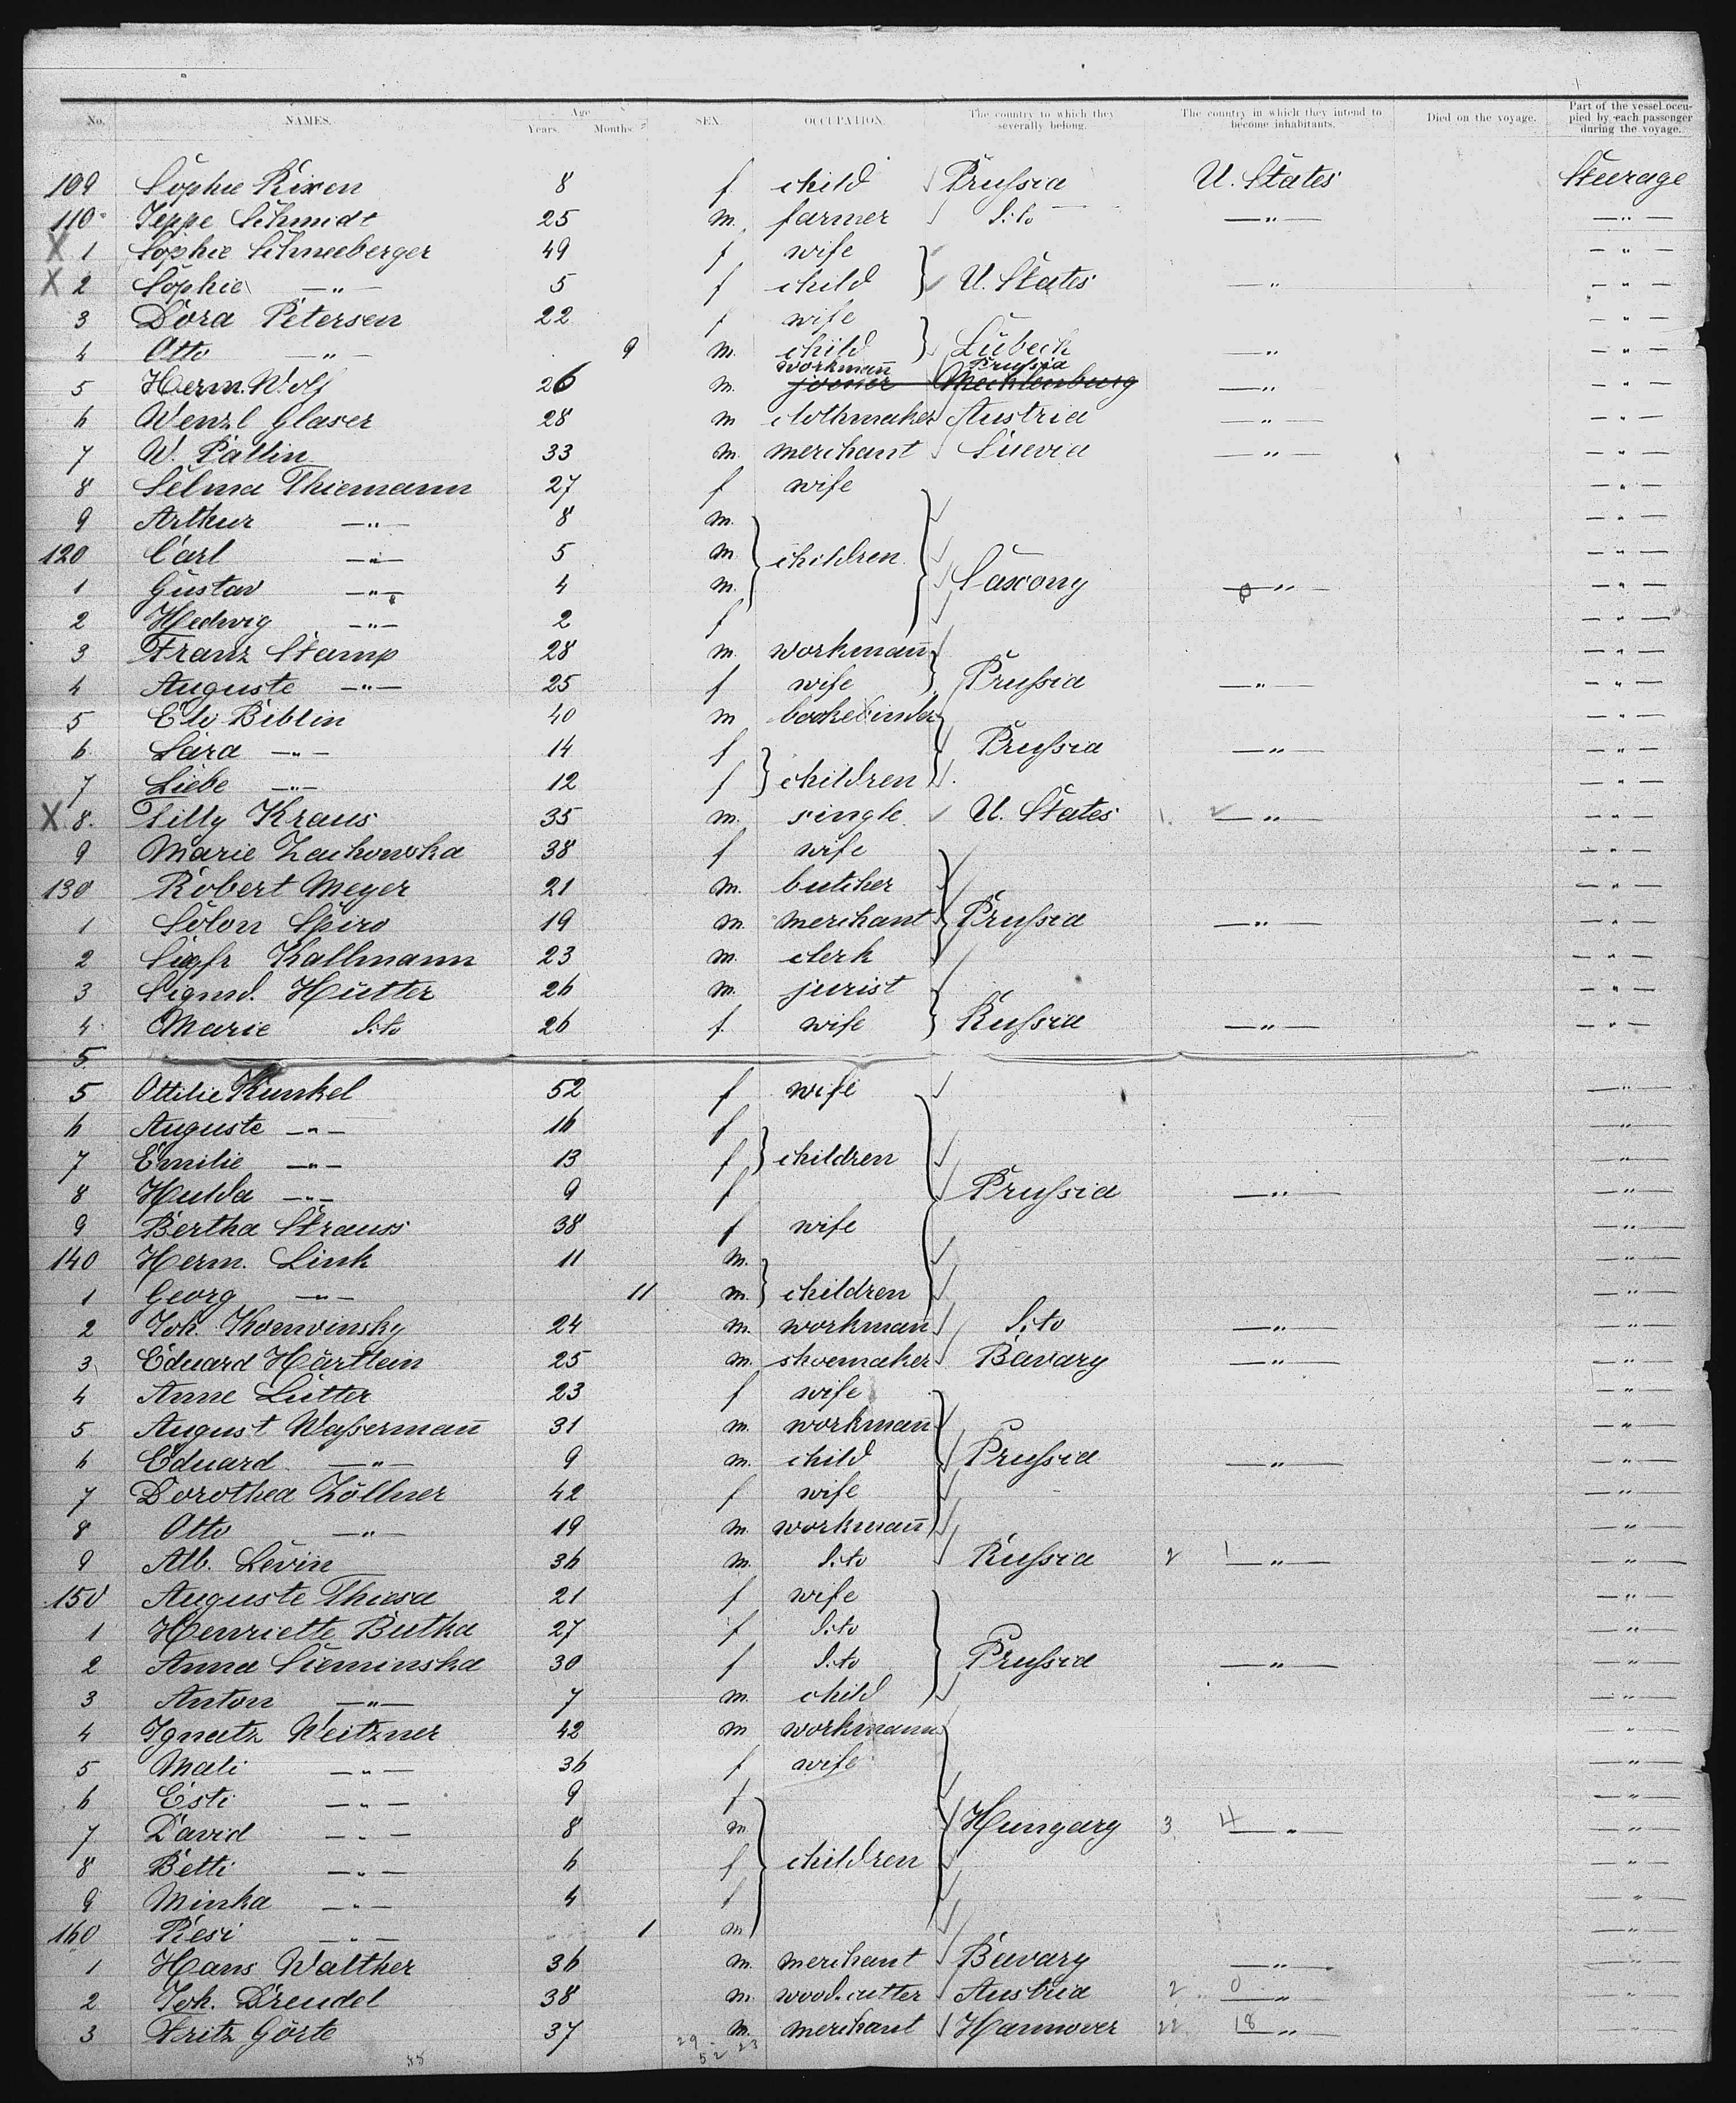 No. NAMES. Age Years. Months SEX. OCCUPATION. The country to which they severally belong. The country in which they intend to become inhabitants. Died on the voyage. Part of the vessel occupied by each passenger during the voyage.
109 Sophie Rixen 8 f child Prussia U. States Steerage
110 Jeppe Schmidt 25 m. farmer dito —"— —"—
X 1 Sophie Schneeberger 49 f wife —"—
X 2 Sophie —"— 5 f child U. States —"— —"—
3 Dora Petersen 22 f wife —"—
4 Otto —"— 9 m. child Lübeck —"— —"—
5 Herm. Wolf 26 m. workman̄ Prussia —"— —"—
6 Wenzl Glaser 28 m clothmaker Austria —"— —"—
7 W. Pallin 33 m. merchant Suevia —"— —"—
8 Selma Thiemann 27 f wife —"—
9 Arthur —"— 8 m. —"—
120 Carl —"— 5 m children —"—
1 Gustav —"— 4 m. Saxony —"— —"—
2 Hedwig —"— 2 f —"—
3 Franz Stamp 28 m. workman̄ —"—
4 Auguste —"— 25 f wife Prussia —"— —"—
5 Eli Biblin 40 m bookebinder —"—
6 Sara —"— 14 f Prussia —"— —"—
7 Liebe —"— 12 f children —"—
X 8. Lilly Kraus 35 m. single U. States 1. —"— —"—
9 Marie Zachowska 38 f wife —"—
130 Robert Meyer 21 m. butcher —"—
1 Solon Spiro 19 m. merchant Prussia —"— —"—
2 Siegfr Kallmann 23 m. clerk —"—
3 Sigmd. Hütter 26 m. jurist —"—
4 Marie dito 26 f. wife Russia —"— —"—
5
5 Ottilie Kunkel 52 f wife —"—
6 Auguste —"— 16 f —"—
7 Emilie —"— 13 f children —"—
8 Hulda —"— 9 f Prussia —"— —"—
9 Bertha Strauss 38 f wife —"—
140 Herm. Link 11 m. —"—
1 Georg —"— 11 m. children —"—
2 Joh. Komvinsky 24 m. workman dito —"— —"—
3 Eduard Härtlein 25 m. shoemaker Bavary —"— —"—
4 Anne Lütter 23 f wife —"—
5 August Wasserman̄ 31 m. workman̄ —"—
6 Eduard —"— 9 m. child Prussia —"— —"—
7 Dorothea Zöllner 42 f wife —"—
8 Otto —"— 19 m. workman̄ —"—
9 Alb. Levin 36 m. dito Russia 2 1 —"— —"—
150 Auguste Thiesa 21 f wife —"—
1 Henriette Butha 27 f dito —"—
2 Anna Sieminska 30 f dito Prussia —"— —"—
3 Anton —"— 7 m. child —"—
4 Ignatz Weitzner 42 m workmann —"—
5 Mali —"— 36 f wife —"—
6 Esti —"— 9 f —"—
7 David —"— 8 m Hungary 3. 4 —"— —"—
8 Betti —"— 6 f children —"—
9 Minka —"— 4 f —"—
160 Resi —"— 1 m —"—
1 Hans Walther 36 m. merchant Bavary —"— —"—
2 Joh. Drendel 38 m. woodcutter Austria 2 0 —"— —"—
3 Fritz Görte 37 m. merchant Hannover 22 18 —"— —"—
29 23
52